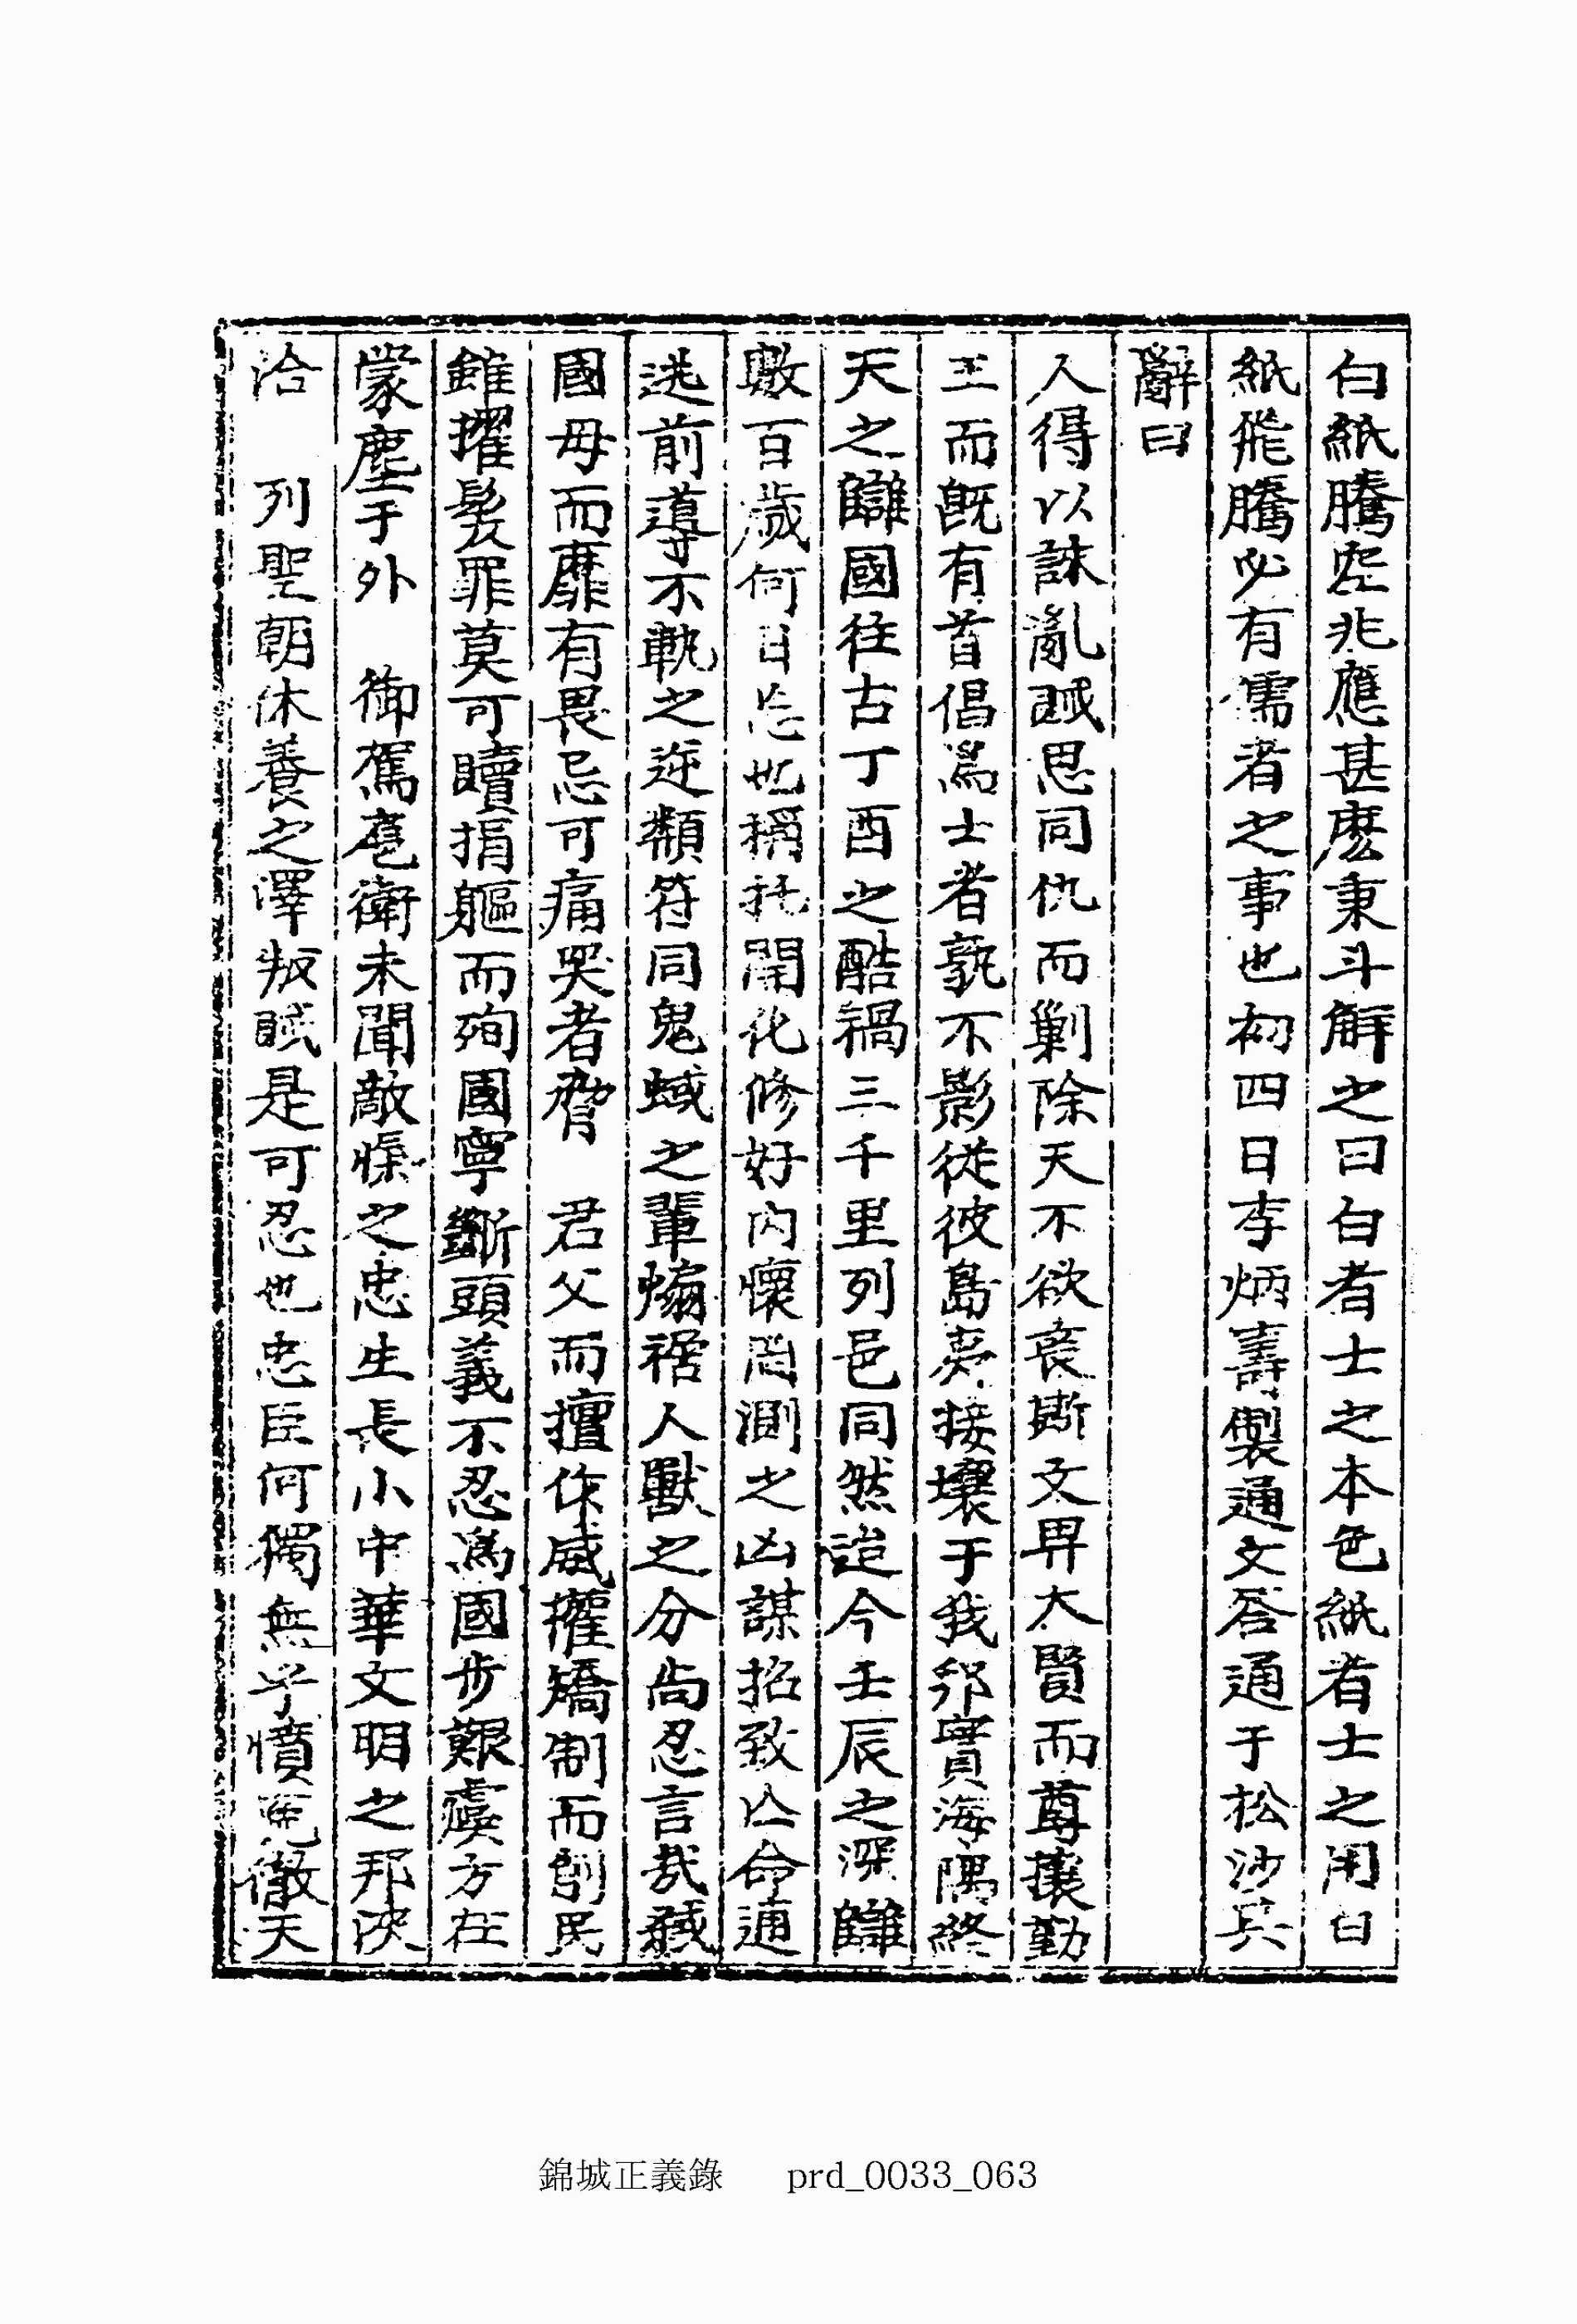 白紙騰空兆應甚麽秉斗解之曰白者士之本色紙者士之用白
紙飛騰必有儒者之事也初四日李炳壽製通文答通于松沙兵
辭曰
人得以誅亂賊思同仇而剿除天不欲喪斯文畀大賢而尊攘勤
王而旣有首倡爲士者孰不影從彼島夷接壤于我邦實海隅終
天之讎國往古丁酉之酷禍三千里列邑同然迨今壬辰之深讎
數百歲何日忘也稱托開化修好內懷罔測之凶謀招致亡命逋
逃前導不軌之逆類符同鬼蜮之輩煽裾人獸之分尙忍言哉戕
國母而靡有畏忌可痛哭者脅 君父而擅作威權矯制而創民
雖擢髮罪莫可贖捐軀而殉國寧斷頭義不忍爲國步艱虞方在
蒙塵于外 御駕扈衛未聞敵愾之忠生長小中華文明之邦浹
洽 列聖朝休養之澤叛賊是可忍也忠臣何獨無乎憤寃徹天
錦城正義錄 prd_0033_063